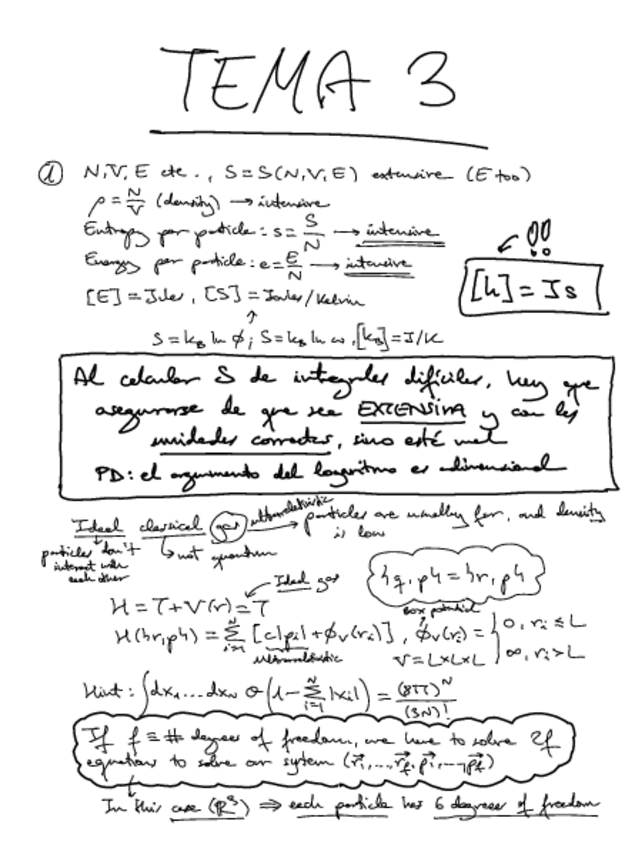 TEMA 3
1 N, V, E etc., S=S(N,V,E) extensive (E too)
ρ = N/V (density) → intensive
Entropy per particle: s = S/N → intensive
Energy per particle: e = E/N → intensive
!!
[h] = Js
[E] = Joules, [S] = Joules/Kelvin
S = k_B ln ϕ; S = k_B ln ω, [k_B] = J/K
Al calcular S de integrales difíciles, hay que
asegurarse de que sea EXTENSIVA y con las
unidades correctas, sino esté mal
PD: el argumento del logaritmo es adimensional
Ideal classical gas ultrarelativistic → particles are usually far, and density
is low
particles don't
interact with
each other
not quantum
Ideal gas
{q, p} = {r, p}
H = T + V(r) = T
box potential
H({r,p}) = Σ_{i=1}^N [c|p_i| + ϕ_V(r_i)], ϕ_V(r_i) = { 0, r_i ≤ L
∞, r_i > L
ultrarelativistic
V = L×L×L
Hint: ∫dx_1...dx_N Θ(1 - Σ_{i=1}^N |x_i|) = (8π)^N/(3N)!
If f ≡ # degrees of freedom, we have to solve 2f
equation to solve our system (r⃗_i, ..., r⃗_f, p⃗_i, ..., p⃗_f)
In this case (ℝ³) ⇒ each particle has 6 degrees of freedom